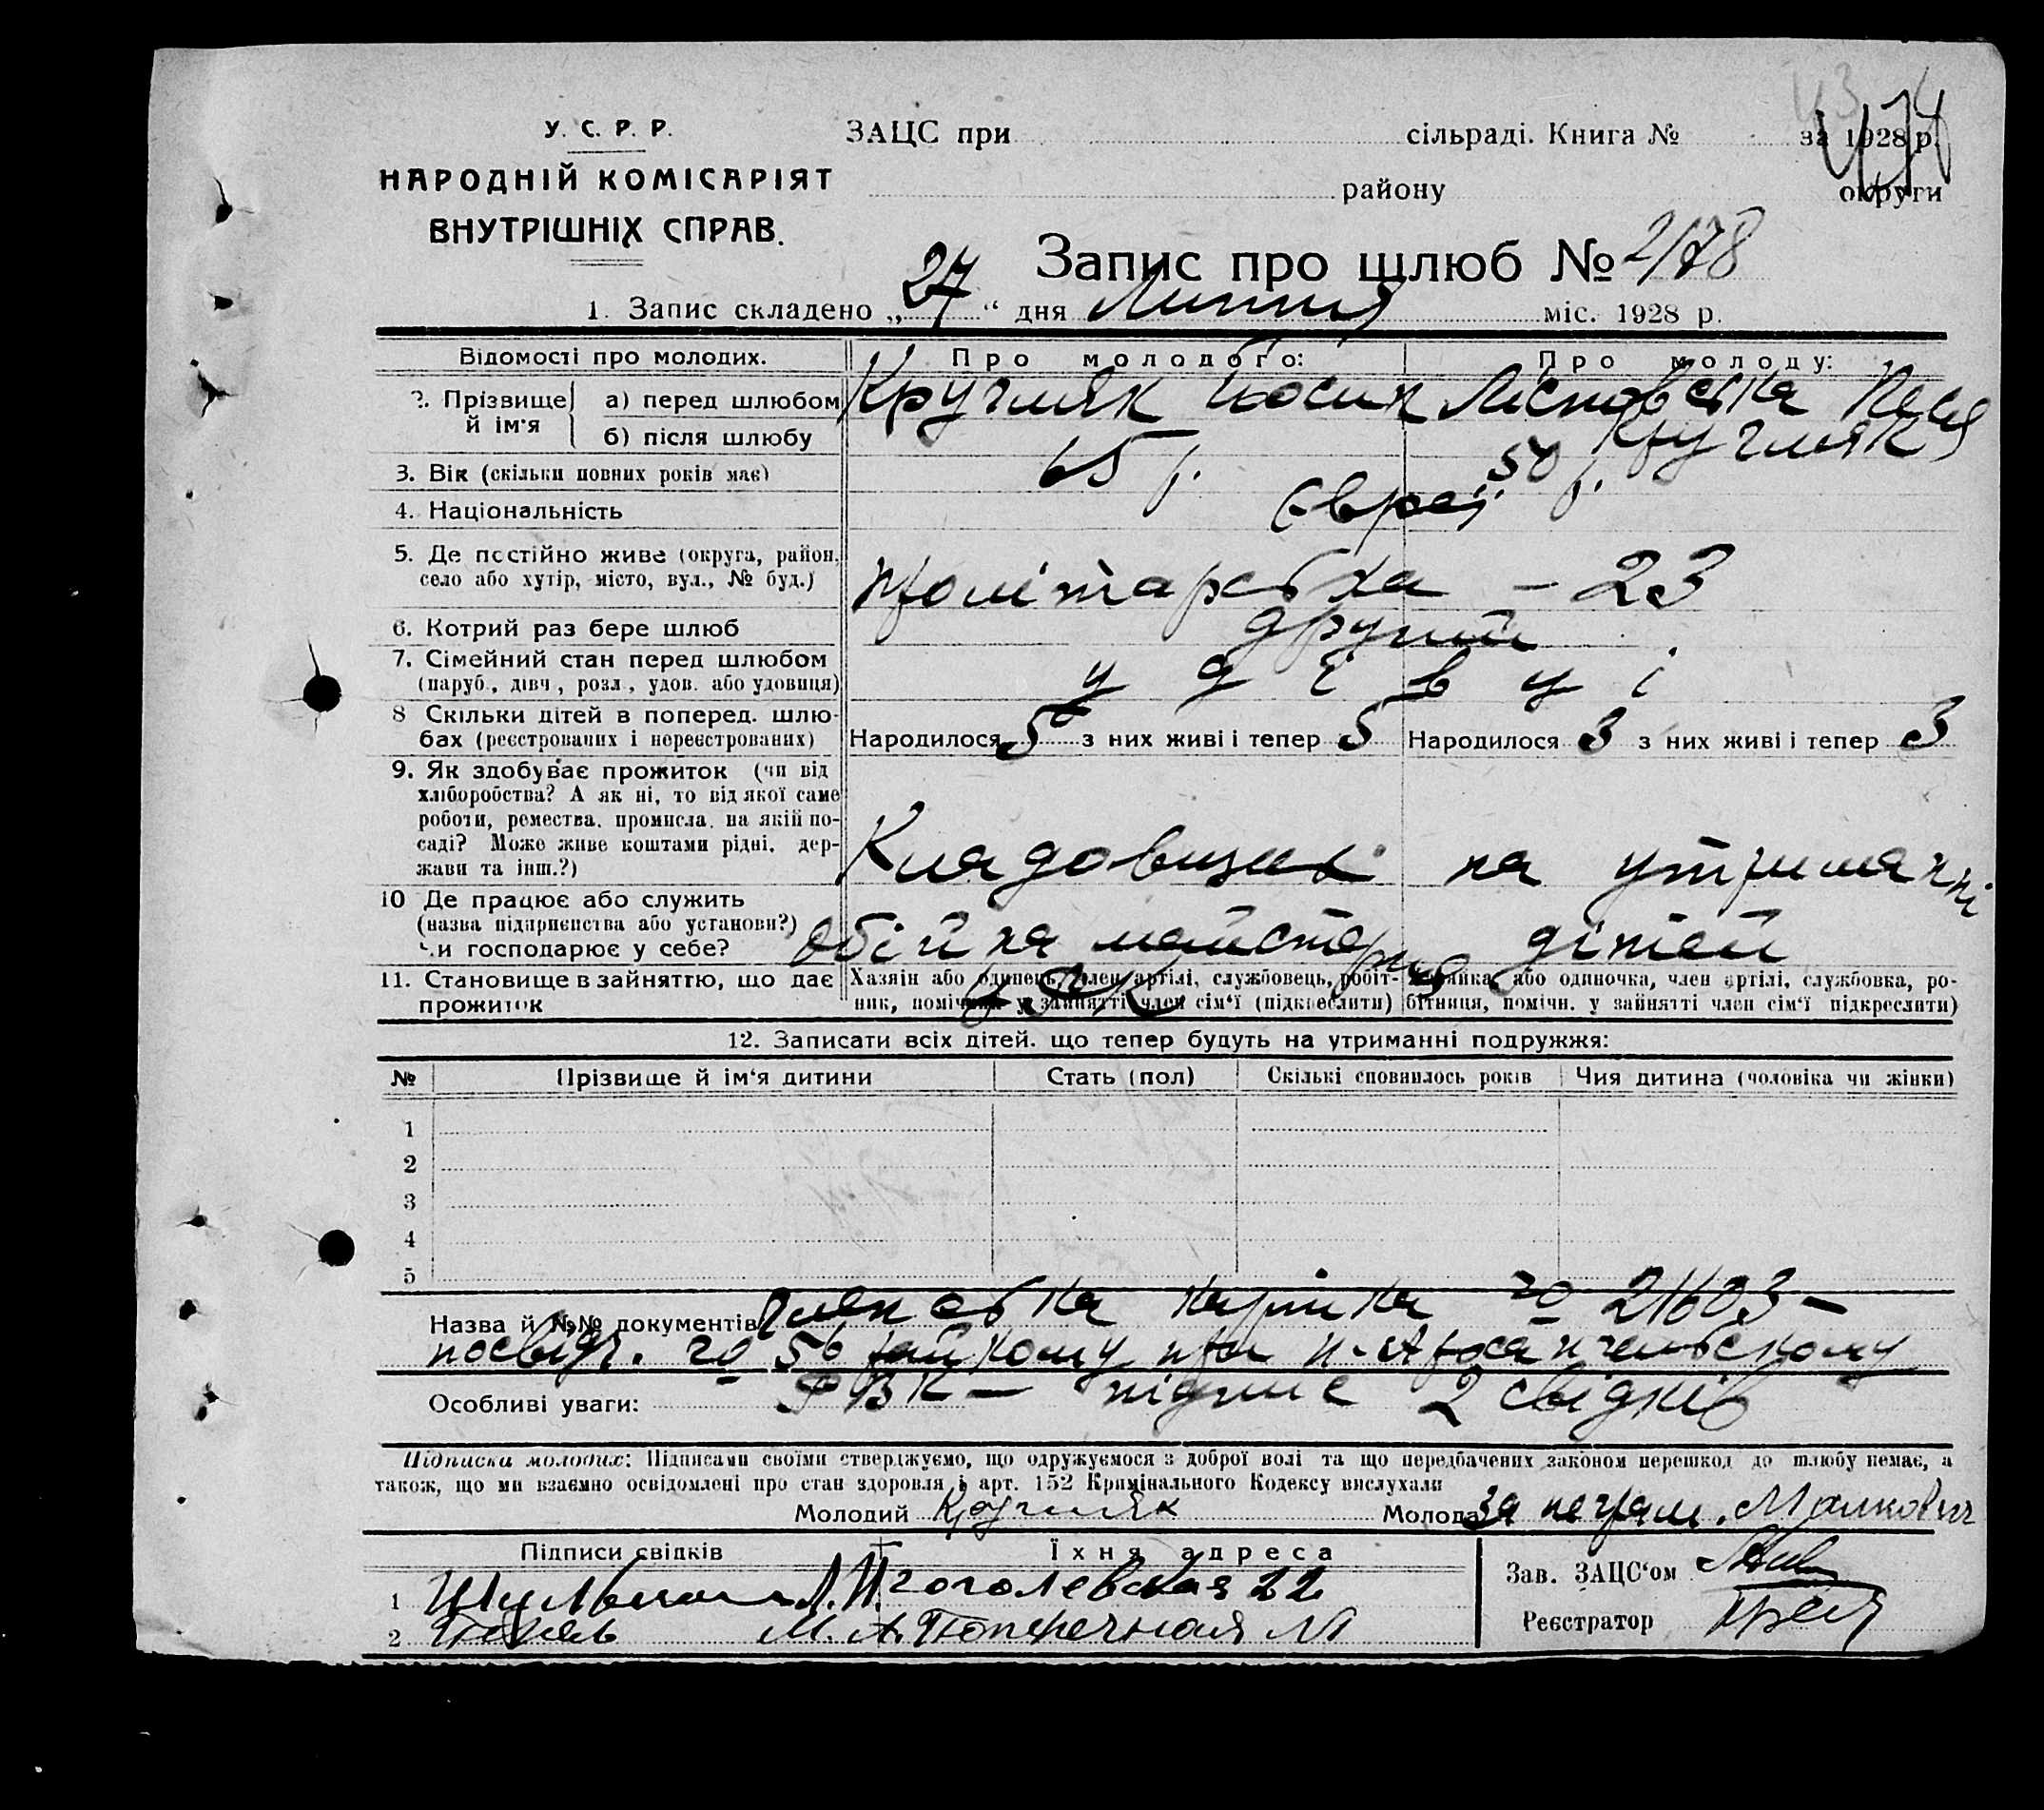 У. С. Р. Р.
НАРОДНІЙ КОМІСАРІЯТ
ВНУТРІШНІХ СПРАВ.
ЗАЦС при сільраді. Книга № за 1928 р.
району округи
Запис про шлюб № 2178
1. Запис складено „27“ дня Липня міс. 1928 р.
Відомості про молодих.
Про молодого:
Про молоду:
2. Прізвище й ім'я
а) перед шлюбом
Кругляк Йосип
б) після шлюбу
Кругляк
3. Вік (скільки повних років має)
65 р.
50 р.
4. Національність
Євреї
5. Де постійно живе (округа, район, село або хутір, місто, вул., № буд.)
Пролітарська - 23
6. Котрий раз бере шлюб
другий
7. Сімейний стан перед шлюбом (паруб., дівч., розл., удов. або удовиця)
удівці
8 Скільки дітей в поперед. шлюбах (реєстрованих і нереєстрованих)
Народилося 5 з них живі і тепер 5
Народилося 3 з них живі і тепер 3
9. Як здобуває прожиток (чи від
хліборобства? А як ні, то від якої саме
роботи, ремества, промисла, на якій по-
саді? Може живе коштами рідні, дер-
жави та інш.?)
Кладовщик
на утриманні
10 Де працює або служить
(назва підприємства або установи?)
Чи господарює у себе?
Обійна майстерня
дітей
11. Становище в зайняттю, що дає
прожиток
Хазяїн або одинець, член артілі, службовець, робіт-
ник, помічник у зайнятті член сім'ї (підкреслити)
Хазяйка, або одиночка, член артілі, службовка, ро-
бітниця, помічн. у зайнятті член сім'ї підкреслити)
12. Записати всіх дітей, що тепер будуть на утриманні подружжя:
№ Прізвище й ім'я дитини Стать (пол) Скількі сповнилось років Чия дитина (чоловіка чи жінки)
1
2
3
4
5
Назва й №№ документів Членська картка № 21603 -
посвідч. № 56 при
Особливі уваги: РВК - підпис 2 свідків
Підписка молодих: Підписами своїми стверджуємо, що одружуємося з доброї волі та що передбачених законом перешкод до шлюбу немає, а
також, що ми взаємно освідомлені про стан здоровля і арт. 152 Кримінального Кодексу вислухали
Молодий Кругляк Молода за неграм. Малкович
Підписи свідків
Їхня адреса
1 Л. И. Гоголевская 22
2 М. А. Поперечная №1
Зав. ЗАЦС'ом
Реєстратор